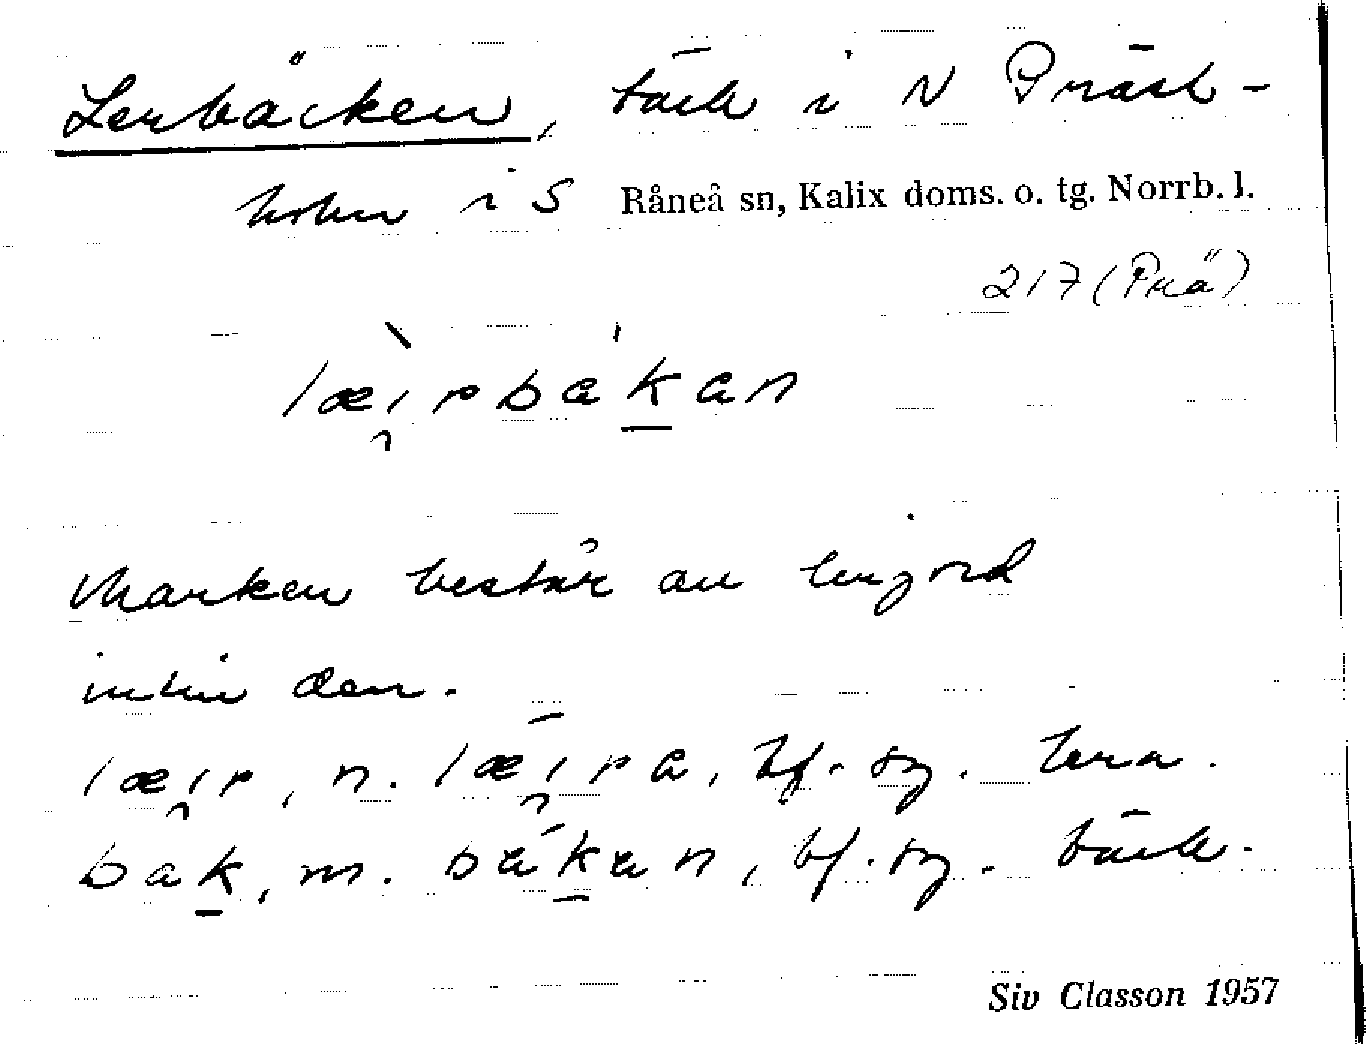 Lerbäcken, bäck i N Präst-
holm i S Råneå sn, Kalix doms. o. tg. Norrb. l.
217 (Prä)
læ̀i̯rbákan
Marken består av lerjord
intill den.
læi̯r, n. lǽi̯ra, bf. sg. lera.
bak, m. bákan, bf. sg. bäck.
Siv Classon 1957